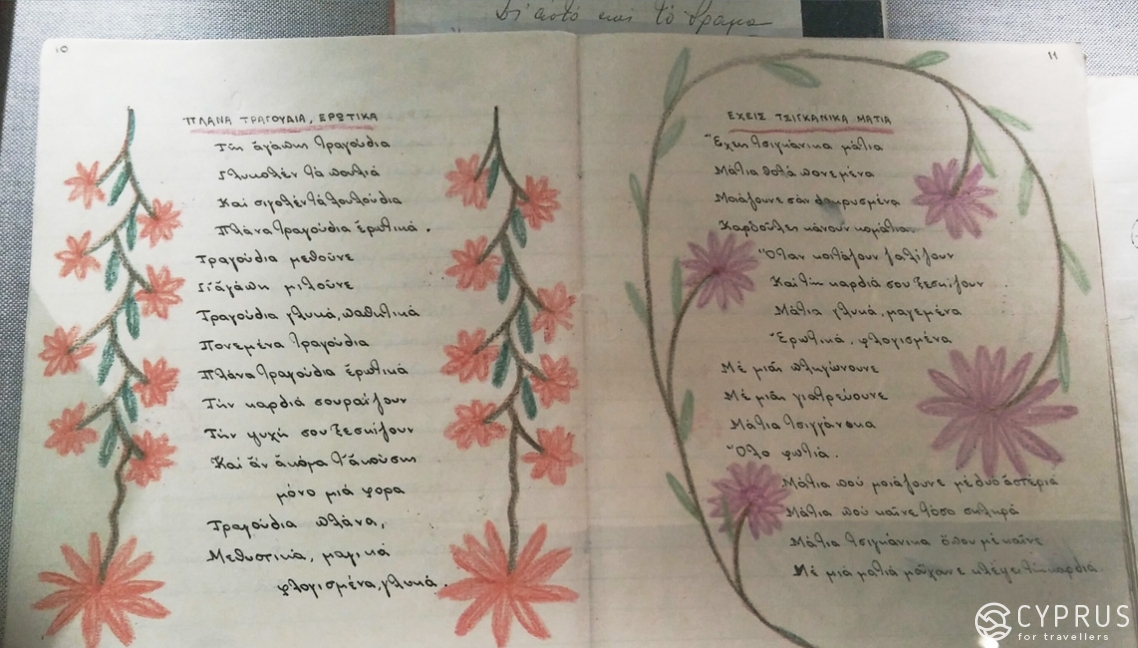 Δι' αὐτό καί τό δρᾶμα
10
ΠΛΑΝΑ ΤΡΑΓΟΥΔΙΑ, ΕΡΩΤΙΚΑ
Τῆς ἀγάπης τραγούδια
Γλυκολέν τά πουλιά
Καί σιγολέν τά λουλούδια
Πλάνα τραγούδια ἐρωτικά.
Τραγούδια μεθοῦνε
Γι' ἀγάπη μιλοῦνε
Τραγούδια γλυκά, παθητικά
Πονεμένα τραγούδια
Πλάνα τραγούδια ἐρωτικά
Τήν καρδιά σου ραΐζουν
Τήν ψυχή σου ξεσκίζουν
Καί ἄν ἀκόμα τ' ἀκούσης
μόνο μιά φορα
Τραγούδια πλάνα,
Μεθυστικά, μαγικά
φλογισμένα, γλυκά.
11
ΕΧΕΙΣ ΤΣΙΓΚΑΝΙΚΑ ΜΑΤΙΑ
Ἔχεις τσιγκάνικα μάτια
Μάτια θολά πονεμένα
Μοιάζουνε σάν δακρυσμένα
Καρδοῦλες κάνουν κομάτια
Ὅταν κοιτάζουν ραΐζουν
Καί τήν καρδιά σου ξεσκίζουν
Μάτια γλυκά, μαγεμένα
Ἐρωτικά, φλογισμένα
Μέ μιᾶς πληγώνουνε
Μέ μιᾶς γιατρεύουνε
Μάτια τσιγγάνικα
Ὅλο φωτιά.
Μάτια πού μοιάζουνε μέ δυό ἀστέρια
Μάτια πού καῖνε τόσο σκληρά
Μάτια τσιγκάνικα ὅπου μέ καῖνε
Μέ μιά ματιά κλέψει τήν καρδιά
CYPRUS
for travellers